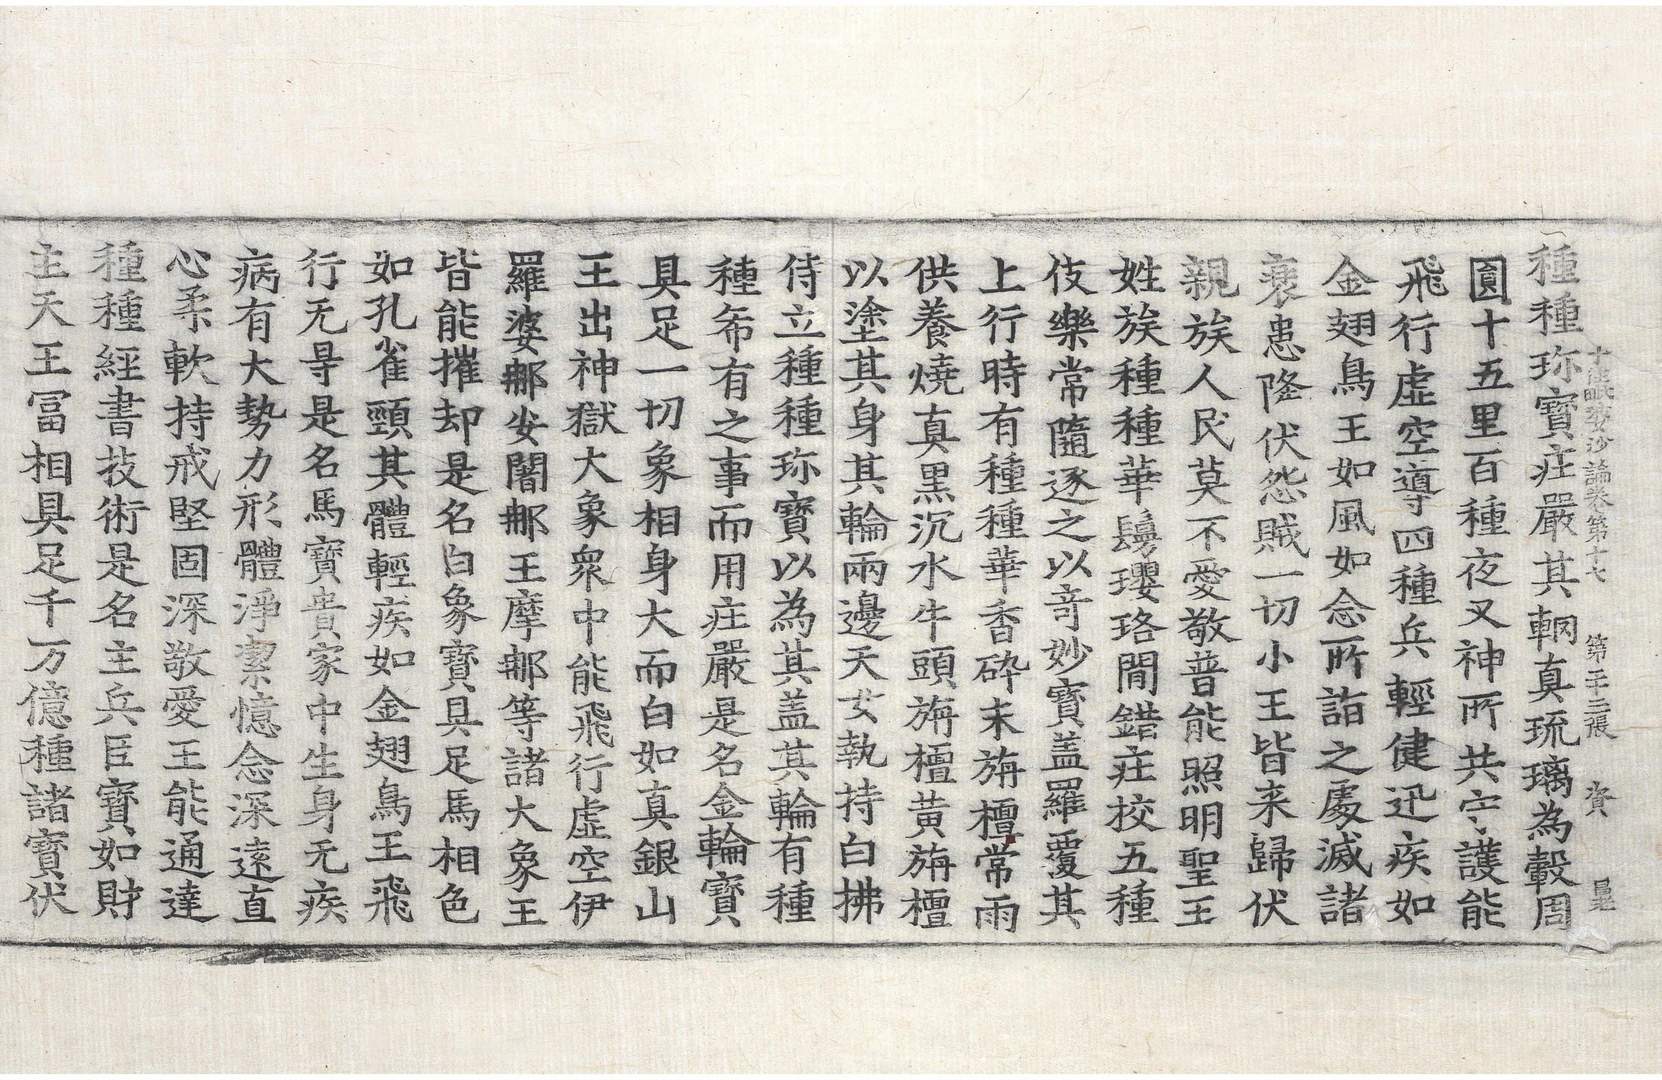 種種珎寶庄嚴其輞真琉璃為轂周
十住毗婆沙論卷第十七 第二十三張 資
圎十五里百種夜叉神所共守護能
飛行虛空導四種兵輕健迅疾如
金翅鳥王如風如念所詣之處滅諸
衰患降伏怨賊一切小王皆来歸伏
親族人民莫不愛敬普能照明聖王
姓族種種華鬘瓔珞間錯庄挍五種
伎樂常隨逐之以竒妙寶盖羅覆其
上行時有種種華香碎末栴檀常雨
供養燒真黒沉水牛頭栴檀黄栴檀
以塗其身其輪兩邊天女執持白拂
侍立種種珎寶以為其盖其輪有種
種希有之事而用庄嚴是名金輪寶
具足一切象相身大而白如真銀山
王出神獄大象衆中能飛行虛空伊
羅婆那安闍那王摩那等諸大象王
皆能摧却是名白象寶具足馬相色
如孔雀頸其體輕疾如金翅鳥王飛
行无㝵是名馬寶貴家中生身无疾
病有大勢力形體淨潔憶念深遠直
心柔軟持戒堅固深敬愛王能通達
種種經書技術是名主兵臣寶如財
主天王冨相具足千万億種諸寶伏